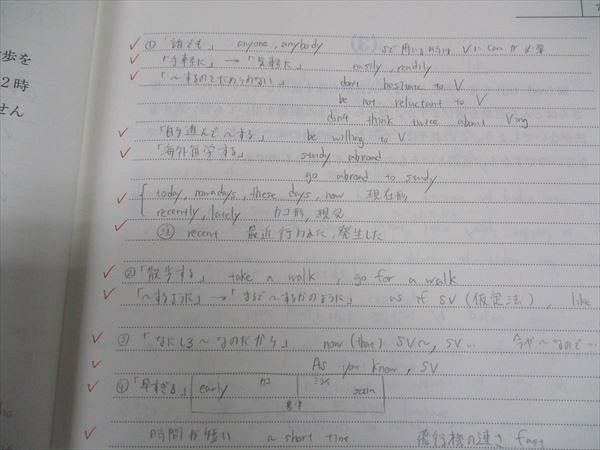 歩を
2時
せん
① 「誰でも」 anyone, anybody
「手軽に」 → 「気軽に」 easily, readily
「〜するのをためらわない」 don't hesitate to V
be not reluctant to V
don't think twice about Ving
「自ら進んで〜する」 be willing to V
「海外留学する」 study abroad
go abroad to study
today, nowadays, these days, now 現在形
recently, lately カコ形, 現完
注 recent 最近行われた, 発生した
② 「散歩する」 take a walk, go for a walk
「〜するように」 → 「まるで〜するかのように」 as if SV (仮定法), like
③ 「なにしろ〜なのだから」 now (that) SV〜, SV… 今や〜なので…
As you know, SV
④ 「早すぎる」 early soon
時間が短い a short time 飛行機の速さ fast